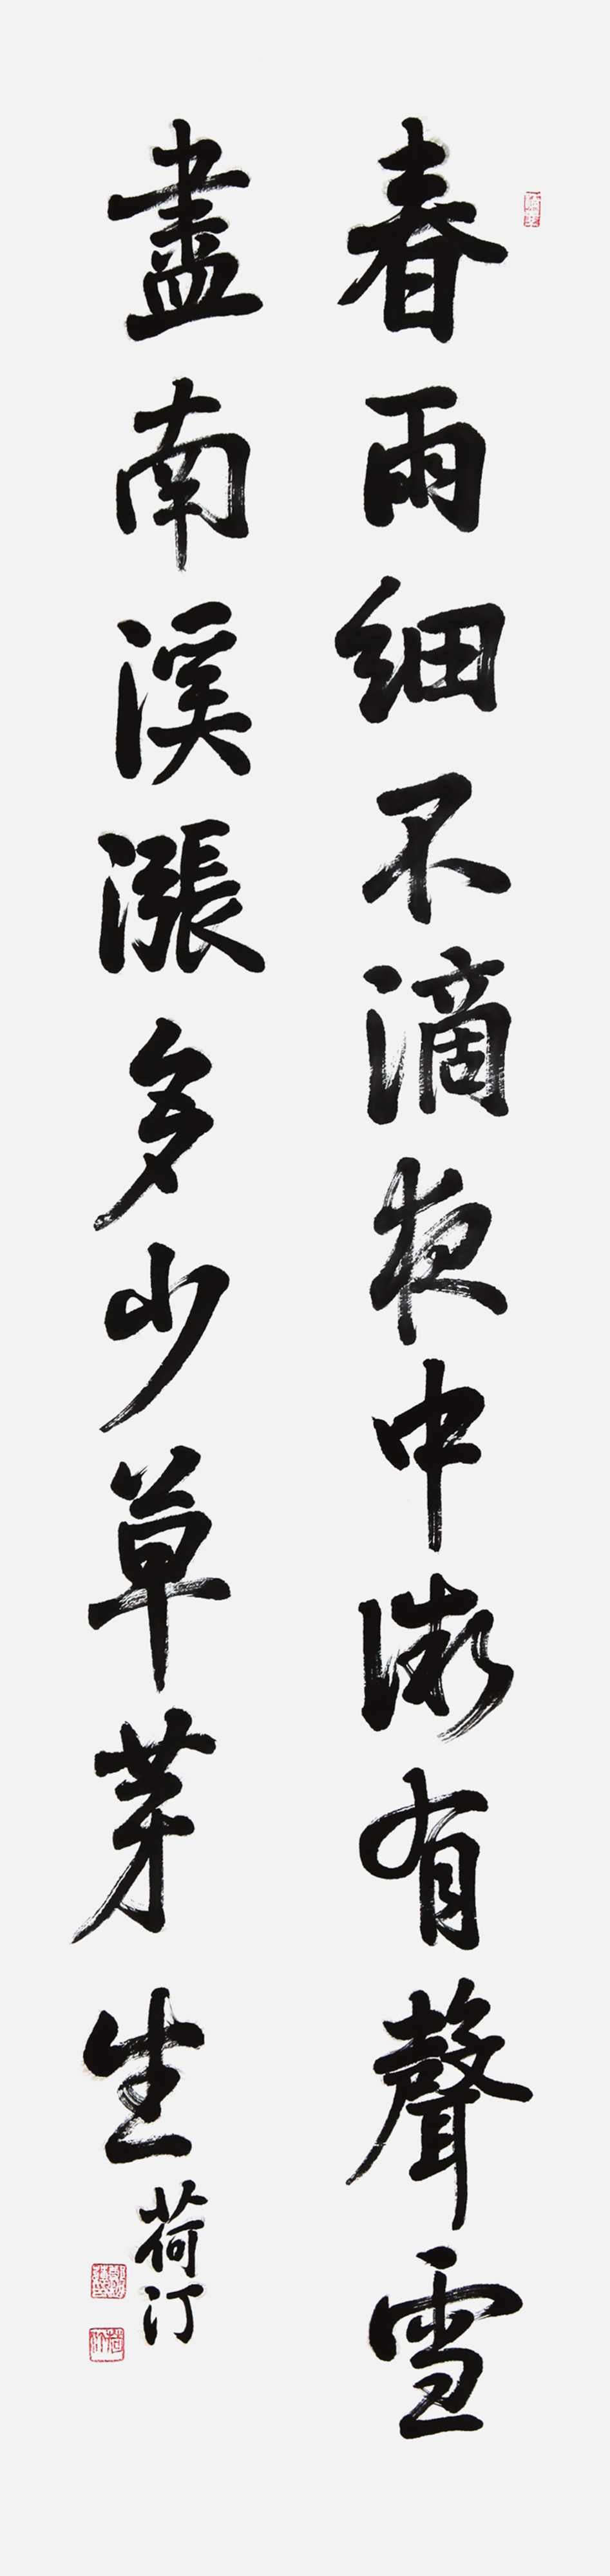 春雨細不滴夜中微有聲雪
盡南溪漲多少草芽生
荷汀